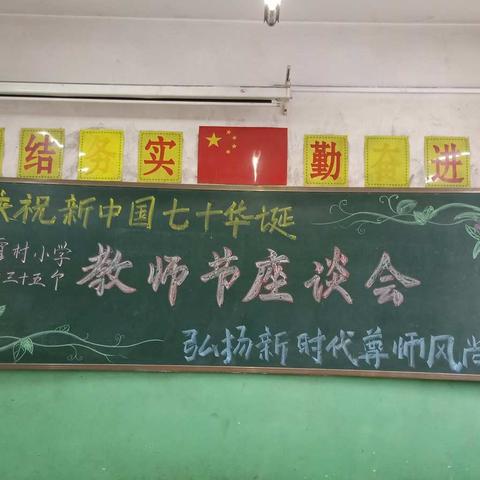 结 务 实 勤 奋 进
庆祝新中国七十华诞
雷村小学
三十五个
教师节座谈会
弘扬新时代尊师风尚